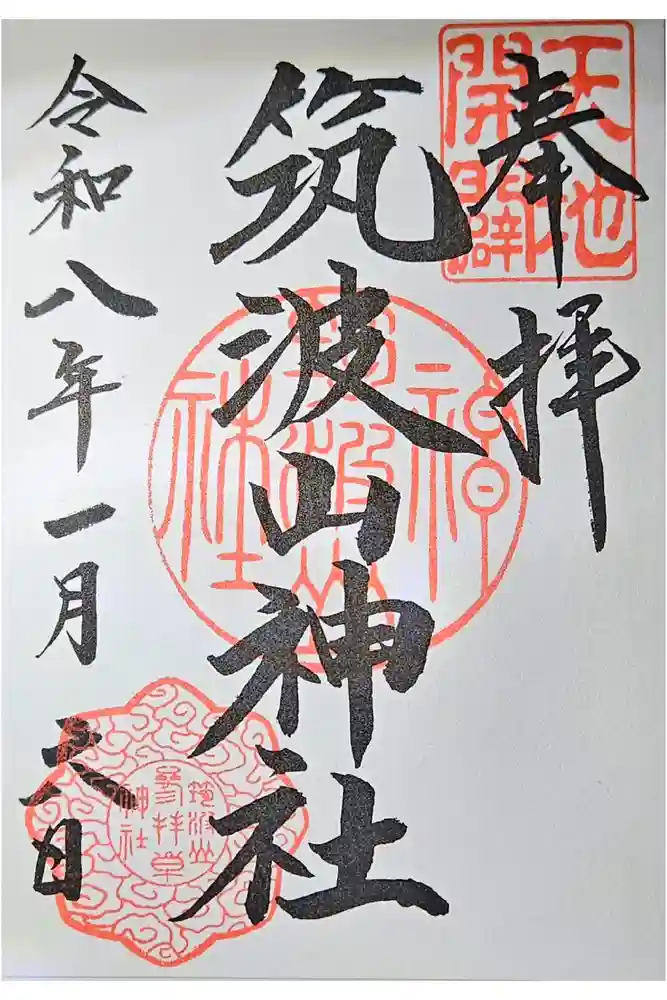 奉拝
天地開闢
筑波山神社
筑波山神社
令和八年一月
日
筑波山
神社